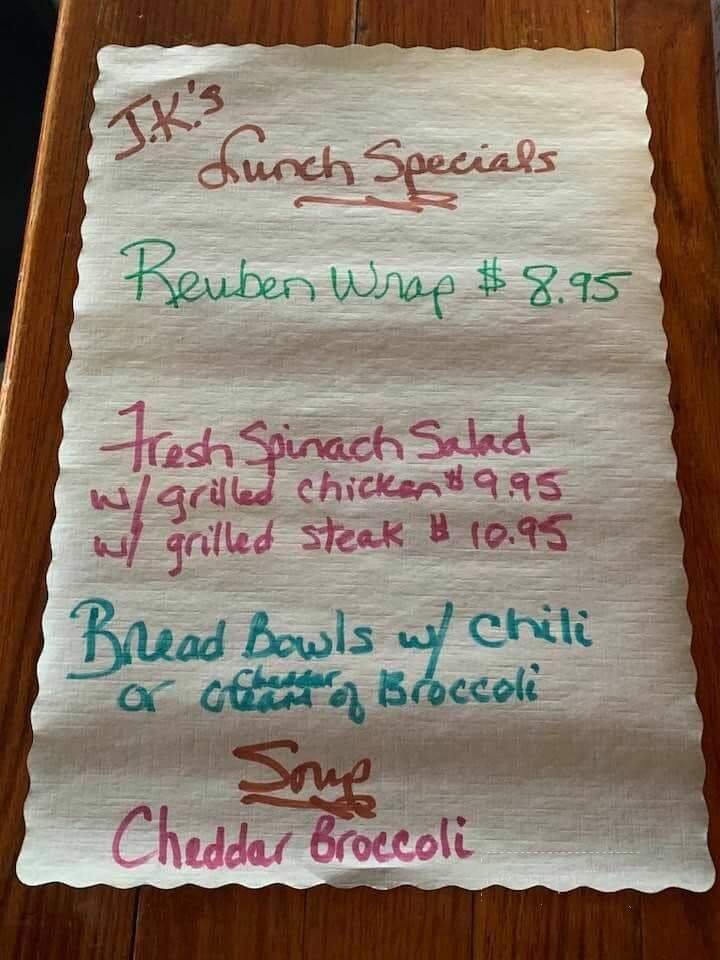 J.K.'s
Lunch Specials
Reuben Wrap $8.95
Fresh Spinach Salad
w/ grilled chicken $9.95
w/ grilled steak $10.95
Bread Bowls w/ Chili
or Cheddar of Broccoli
Soup
Cheddar Broccoli